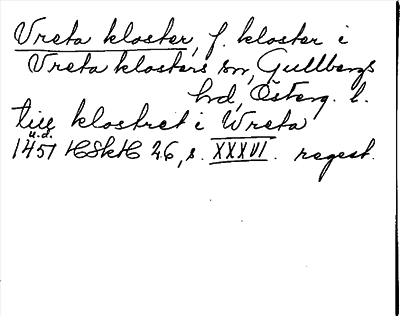 Vreta kloster, f. kloster i
Vreta klosters sn, Gullbergs
hd, Österg. l.
till klostret i Wreta
u.d.
1451 HSkH 26, s. XXXVI. regest.